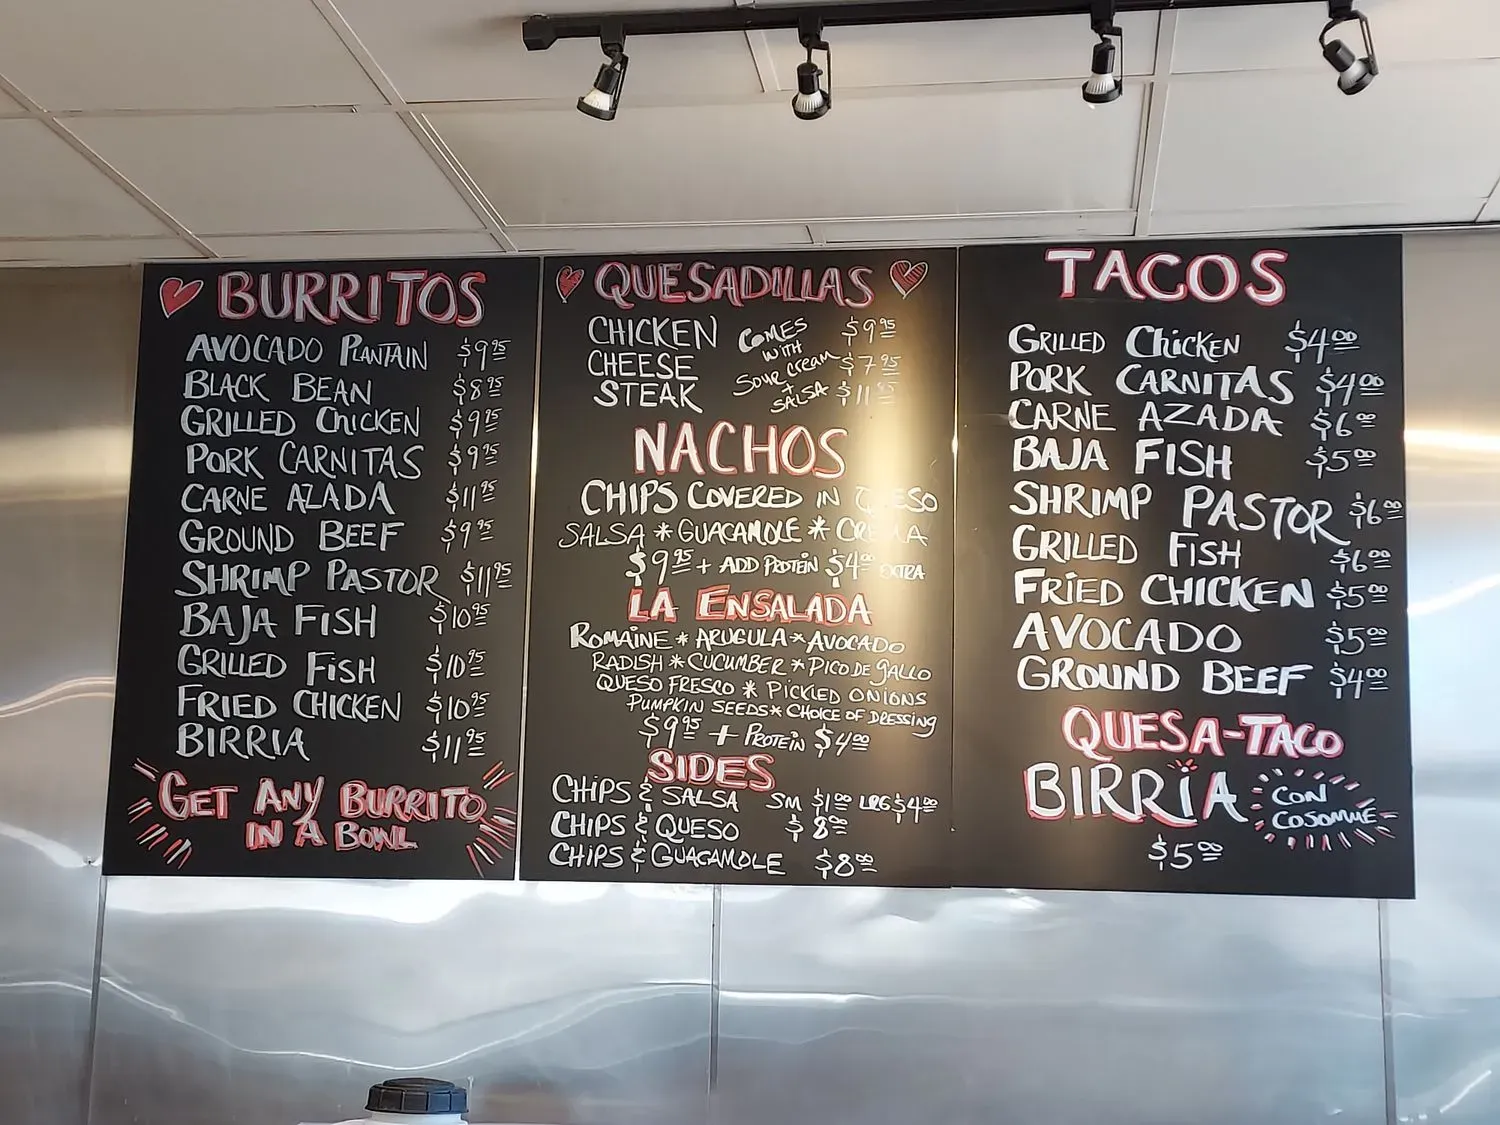 BURRITOS
AVOCADO PLANTAIN $9.95
BLACK BEAN $8.95
GRILLED CHICKEN $9.95
PORK CARNITAS $9.95
CARNE AZADA $11.95
GROUND BEEF $9.95
SHRIMP PASTOR $11.95
BAJA FISH $10.95
GRILLED FISH $10.95
FRIED CHICKEN $10.95
BIRRIA $11.95
GET ANY BURRITO
IN A BOWL
QUESADILLAS
CHICKEN $9.95
CHEESE $7.95
STEAK $11.95
COMES
WITH
SOUR CREAM
+
SALSA
NACHOS
CHIPS COVERED IN QUESO
SALSA * GUACAMOLE * CREMA
$9.95 + ADD PROTEIN $4.00 EXTRA
LA ENSALADA
ROMAINE * ARUGULA * AVOCADO
RADISH * CUCUMBER * PICO DE GALLO
QUESO FRESCO * PICKLED ONIONS
PUMPKIN SEEDS * CHOICE OF DRESSING
$9.95 + PROTEIN $4.00
SIDES
CHIPS & SALSA SM $1.00 LRG $4.00
CHIPS & QUESO $8.00
CHIPS & GUACAMOLE $8.00
TACOS
GRILLED CHICKEN $4.00
PORK CARNITAS $4.00
CARNE AZADA $6.00
BAJA FISH $5.00
SHRIMP PASTOR $6.00
GRILLED FISH $6.00
FRIED CHICKEN $5.00
AVOCADO $5.00
GROUND BEEF $4.00
QUESA-TACO
BIRRIA CON
COSOMME
$5.00